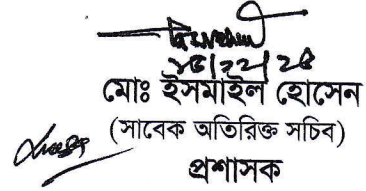 মোঃ ইসমাইল হোসেন
(সাবেক অতিরিক্ত সচিব)
প্রশাসক